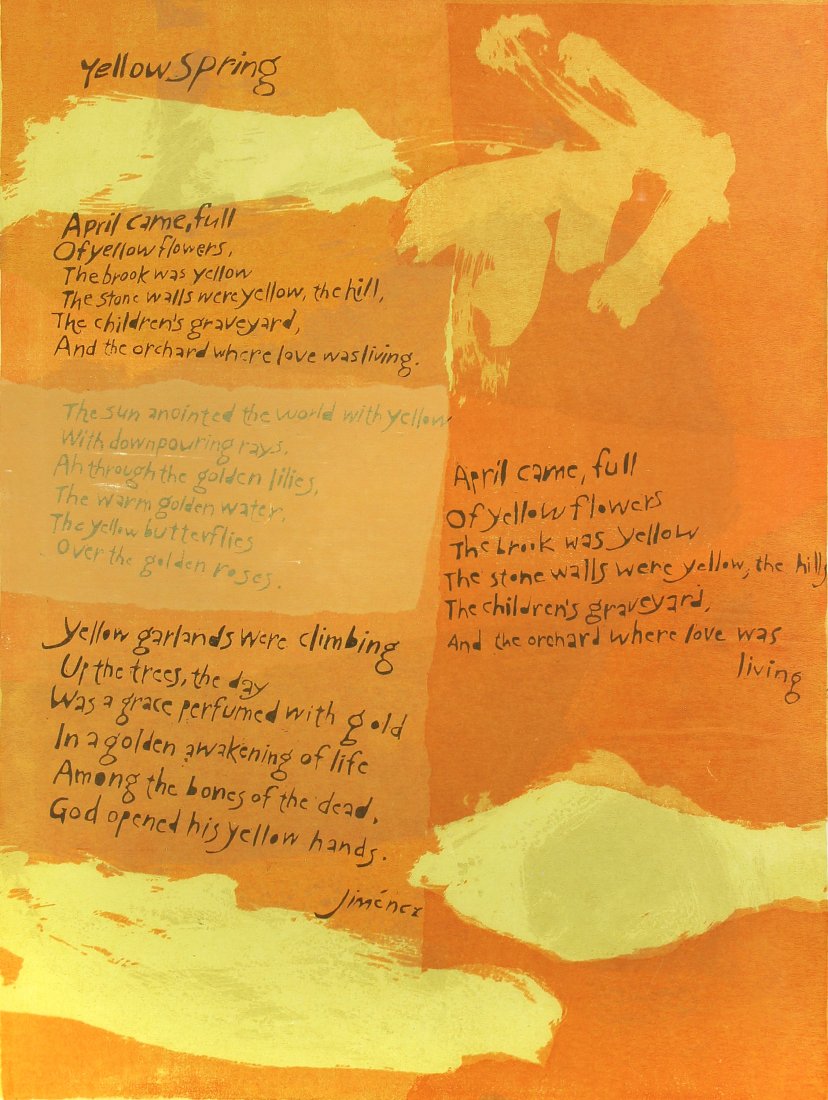 Yellow Spring
April came, full
Of yellow flowers,
The brook was yellow
The stone walls were yellow, the hill,
The children's graveyard,
And the orchard where love was living.
The sun anointed the world with yellow
With downpouring rays,
Ah through the golden lilies,
The warm golden water,
The yellow butterflies
Over the golden roses.
Yellow garlands were climbing
Up the trees, the day
Was a grace perfumed with gold
In a golden awakening of life
Among the bones of the dead,
God opened his yellow hands.
Jiménez
April came, full
Of yellow flowers
The brook was yellow
The stone walls were yellow, the hills
The children's graveyard,
And the orchard where love was
living